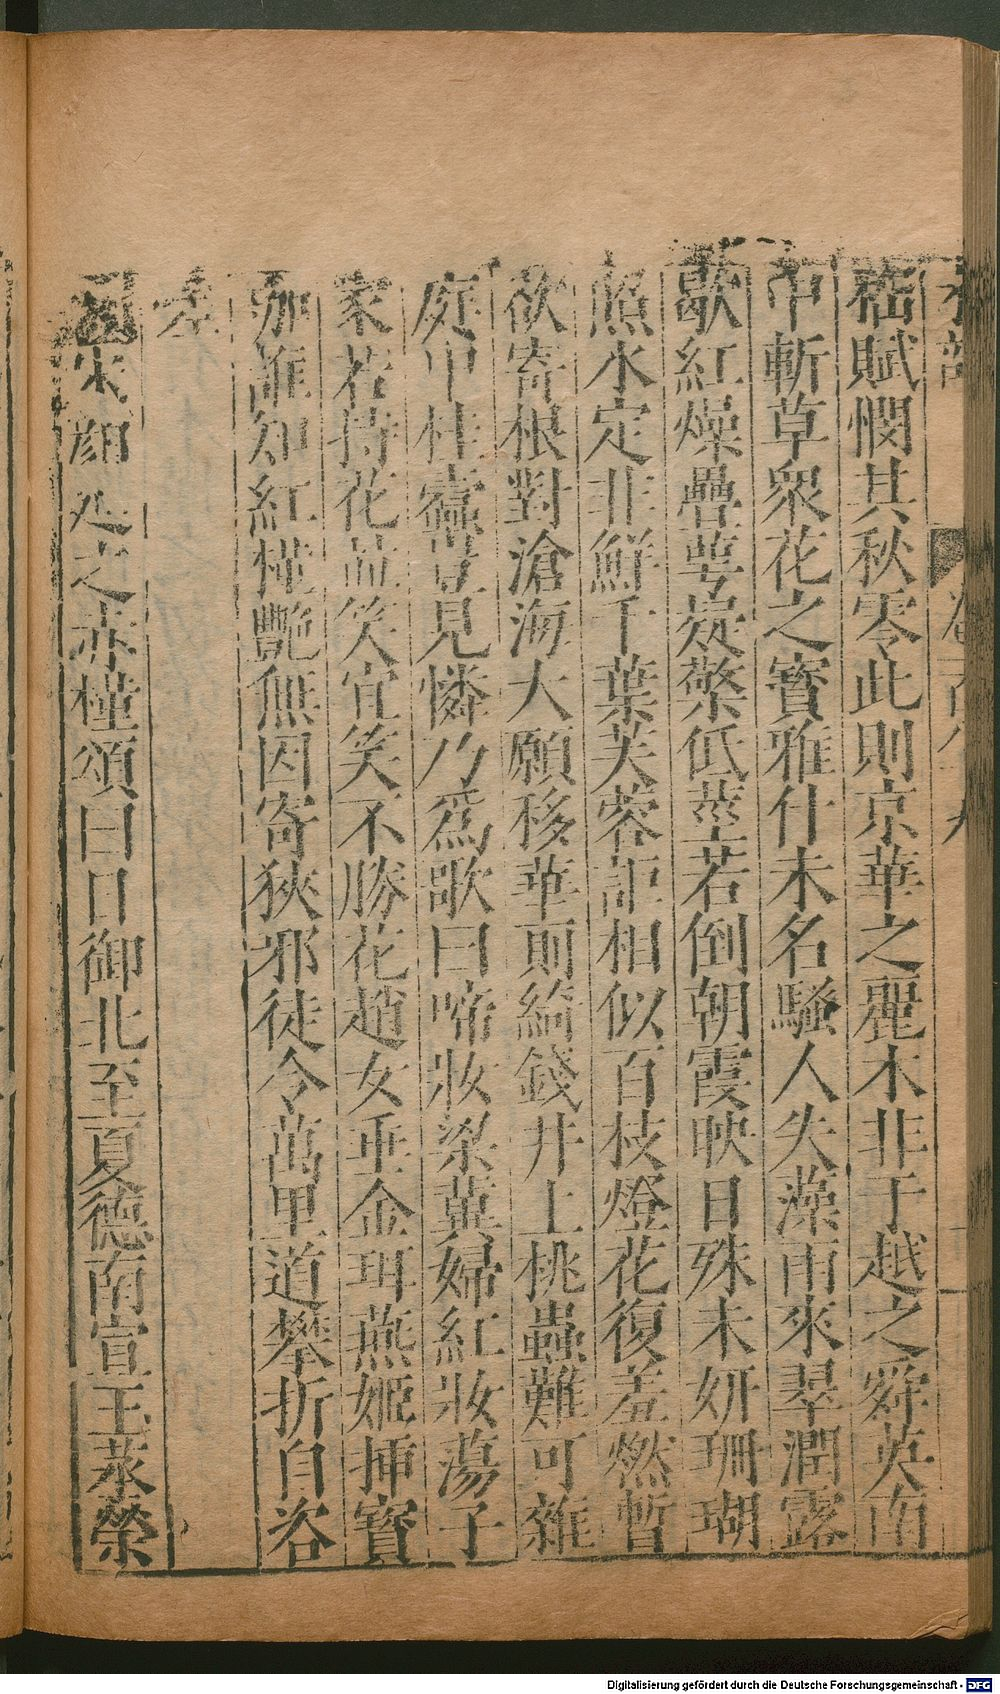 卷百八十九
嵇賦憫其秋零此則京華之麗木非于越之舜英南
中斬草衆花之寳雅什未名騷人失藻雨來翠潤露
歇紅燥疊萼疑檠低莖若倒朝霞映日殊未妍珊瑚
照水定非鮮千葉芙蓉詎相似百枝燈花復羞燃暫
欲寄根對滄海大願移華厠綺錢井上桃蟲難可雜
庭中桂蠧豈見憐乃爲歌曰啼妝梁冀婦紅妝蕩子
家若持花並笑宜笑不勝花趙女垂金珥燕姬揷寳
珈誰知紅槿艷無因寄狹邪徒令萬里道攀折自咨
嗟
宋顔延之赤槿頌曰日御北至夏德南宣玉蒸榮
Digitalisierung gefördert durch die Deutsche Forschungsgemeinschaft - DFG